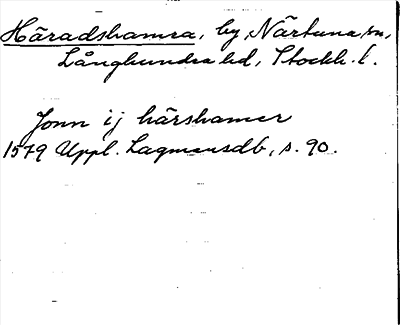 Häradshamra, by, Närtuna sn,
Långhundra hd, Stockh. l.
Jonn ij härshamer
1579 Uppl. Lagmansdb, s. 90.